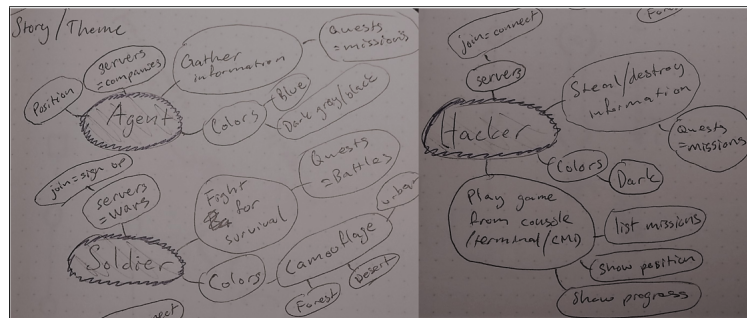 Story / Theme
servers
=companies
Position
Agent
Gather
information
Quests
=missions
Colors
Blue
Dark gray/black
join=sign up
servers
=wars
Soldier
Fight
for
survival
Quests
=Battles
Colors
Camouflage
urban
Forest
Desert
nect
join=connect
servers
Hacker
Steal/destroy
information
Quests
=missions
Colors
Dark
Play game
from console
(terminal/CMD)
list missions
show position
Show progress